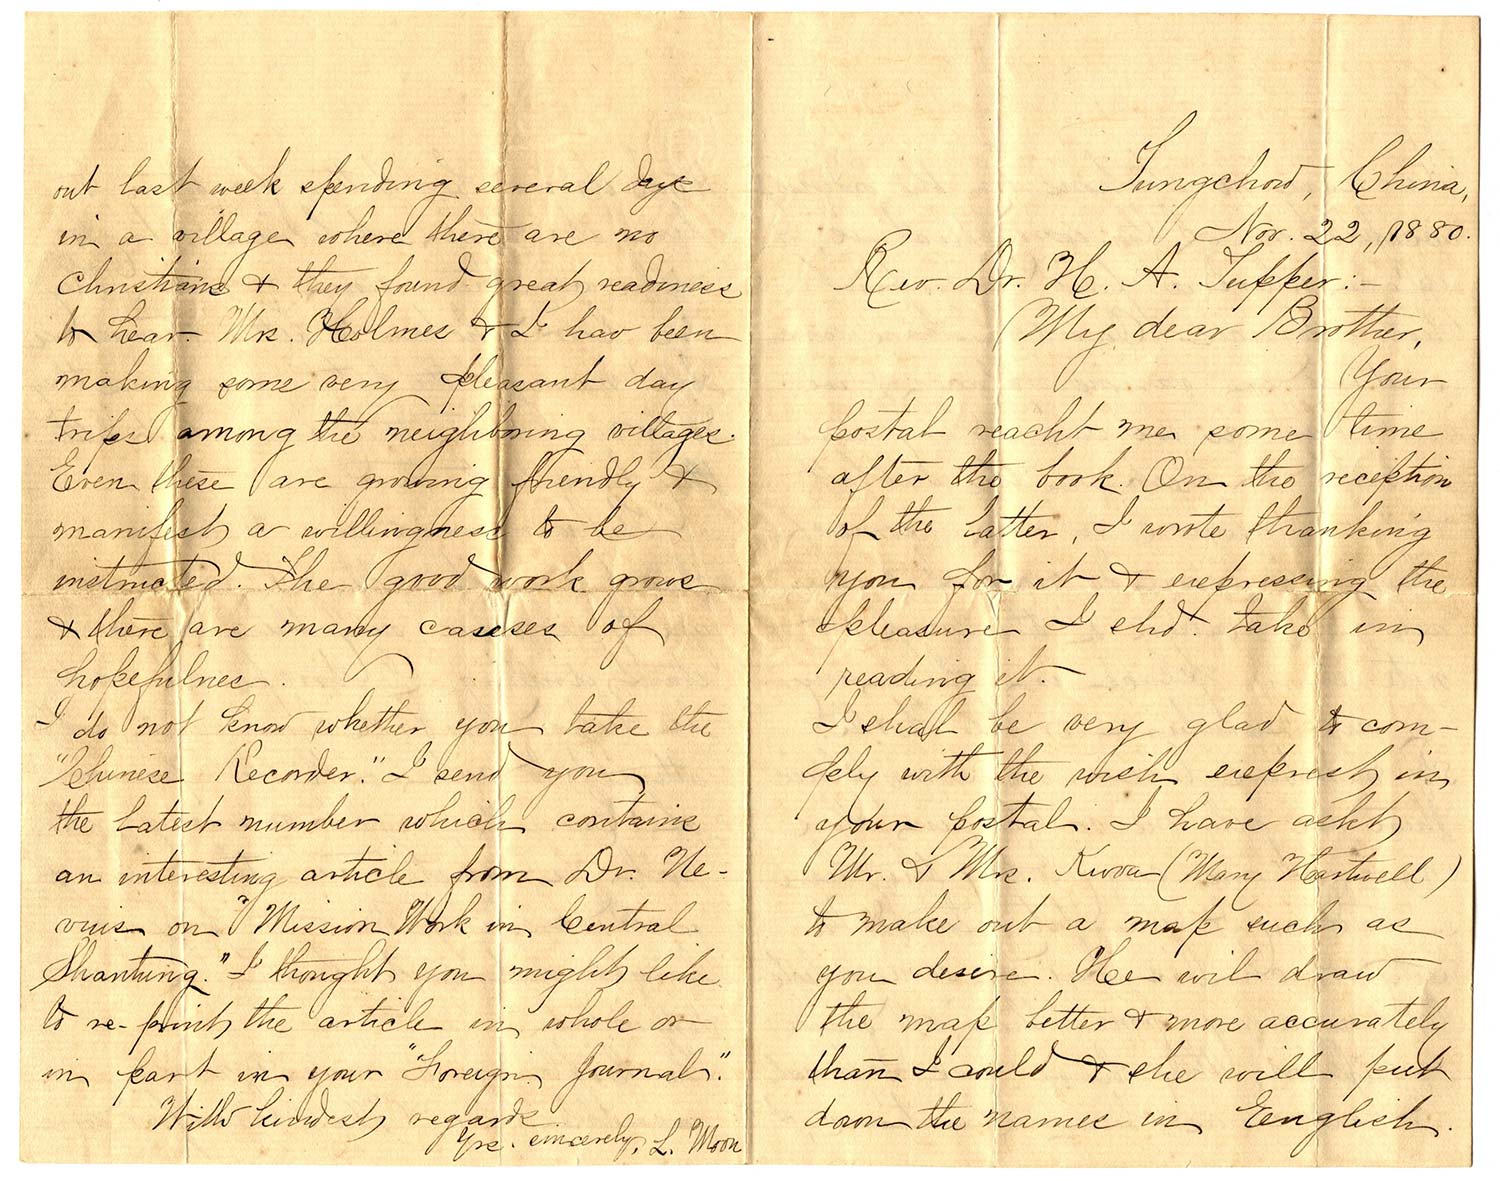 Tungchow, China,
Nov. 22, 1880.
Rev. Dr. H. A. Tupper:-
My dear Brother,
Your
postal reacht me some time
after the book. On the reception
of the latter, I wrote thanking
you for it & expressing the
pleasure I shd. take in
reading it.-
I shal be very glad to com-
ply with the wish exprest in
your postal. I have askt
Mr. & Mrs. Kwoa (Mary Hartwell)
to make out a map such as
you desire. He wil draw
the map better & more accurately
than I could & she will put
down the names in English.
out last week spending several days
in a village where there are no
Christians & they found great readiness
to hear. Mrs. Holmes & I hav been
making some very pleasant day
trips among the neighboring villages.
Even these are growing friendly &
manifest a willingness to be
instructed. The good work grows
& there are many cases of
hopefulnes.
I do not know whether you take the
"Chinese Recorder." I send you
the latest number which contains
an interesting article from Dr. Ne-
vius on "Mission Work in Central
Shantung." I thought you might like
to re-print the article in whole or
in part in your "Foreign Journal."
With kindest regards
Yrs. sincerely, L. Moon